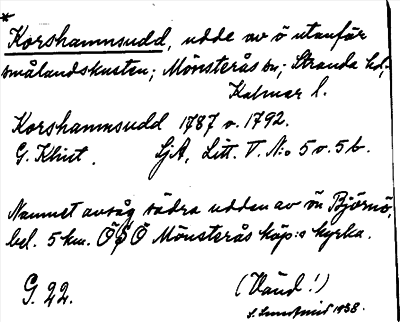 *
Korshamnsudd, udde av ö utanför
smålandskusten; Mönsterås sn; Stranda hd;
Kalmar l.
Korshamnsudd 1787 o. 1792.
G. Klint. SjA, Litt. T. N:o 5 o. 5 b.
Namnet avsåg södra udden av ön Björnö,
bel. 5 km. ÖSÖ Mönsterås köp:s kyrka.
G. 22. (Vänd!)
1938.